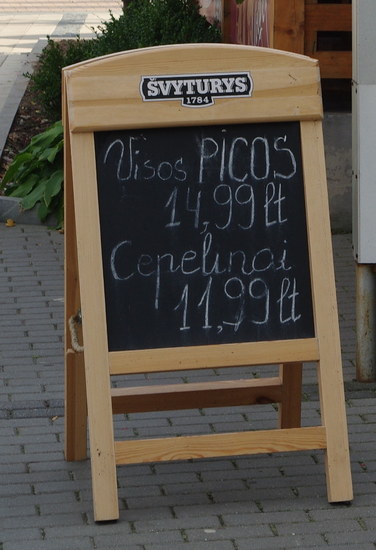 ŠVYTURYS
1784
Visos PICOS
14,99 lt
Cepelinai
11,99 lt